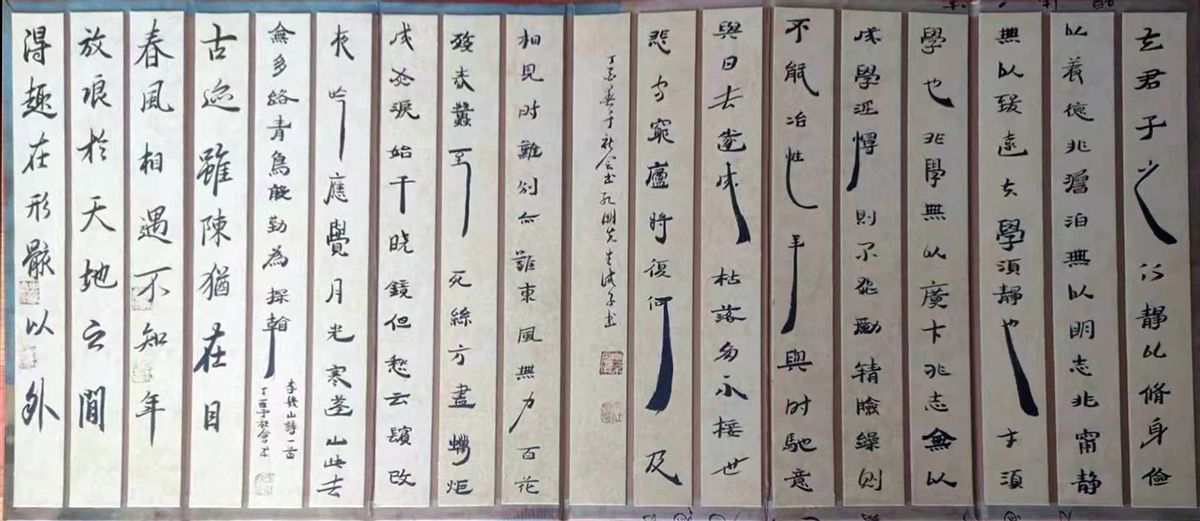 夫君子之行静以脩身儉
以養德非澹泊無以明志非甯静
無以致遠夫學須静也才須
學也非學無以廣才非志無以
成學淫慢則不能勵精險躁則
不能冶性年與时馳意
與日去遂成枯落多不接世
悲守窮廬將復何及
丁酉春于社会書孔明先生誡子書
相見时難别亦難東風無力百花
殘春蠶到死絲方盡蠟炬
成灰淚始干曉鏡但愁云鬢改
夜吟應覺月光寒蓬山此去
無多路青鳥殷勤為探看
李義山詩一首
丁酉于社會
古迹雖陳猶在目
春風相遇不知年
放浪於天地之間
得趣在形骸以外